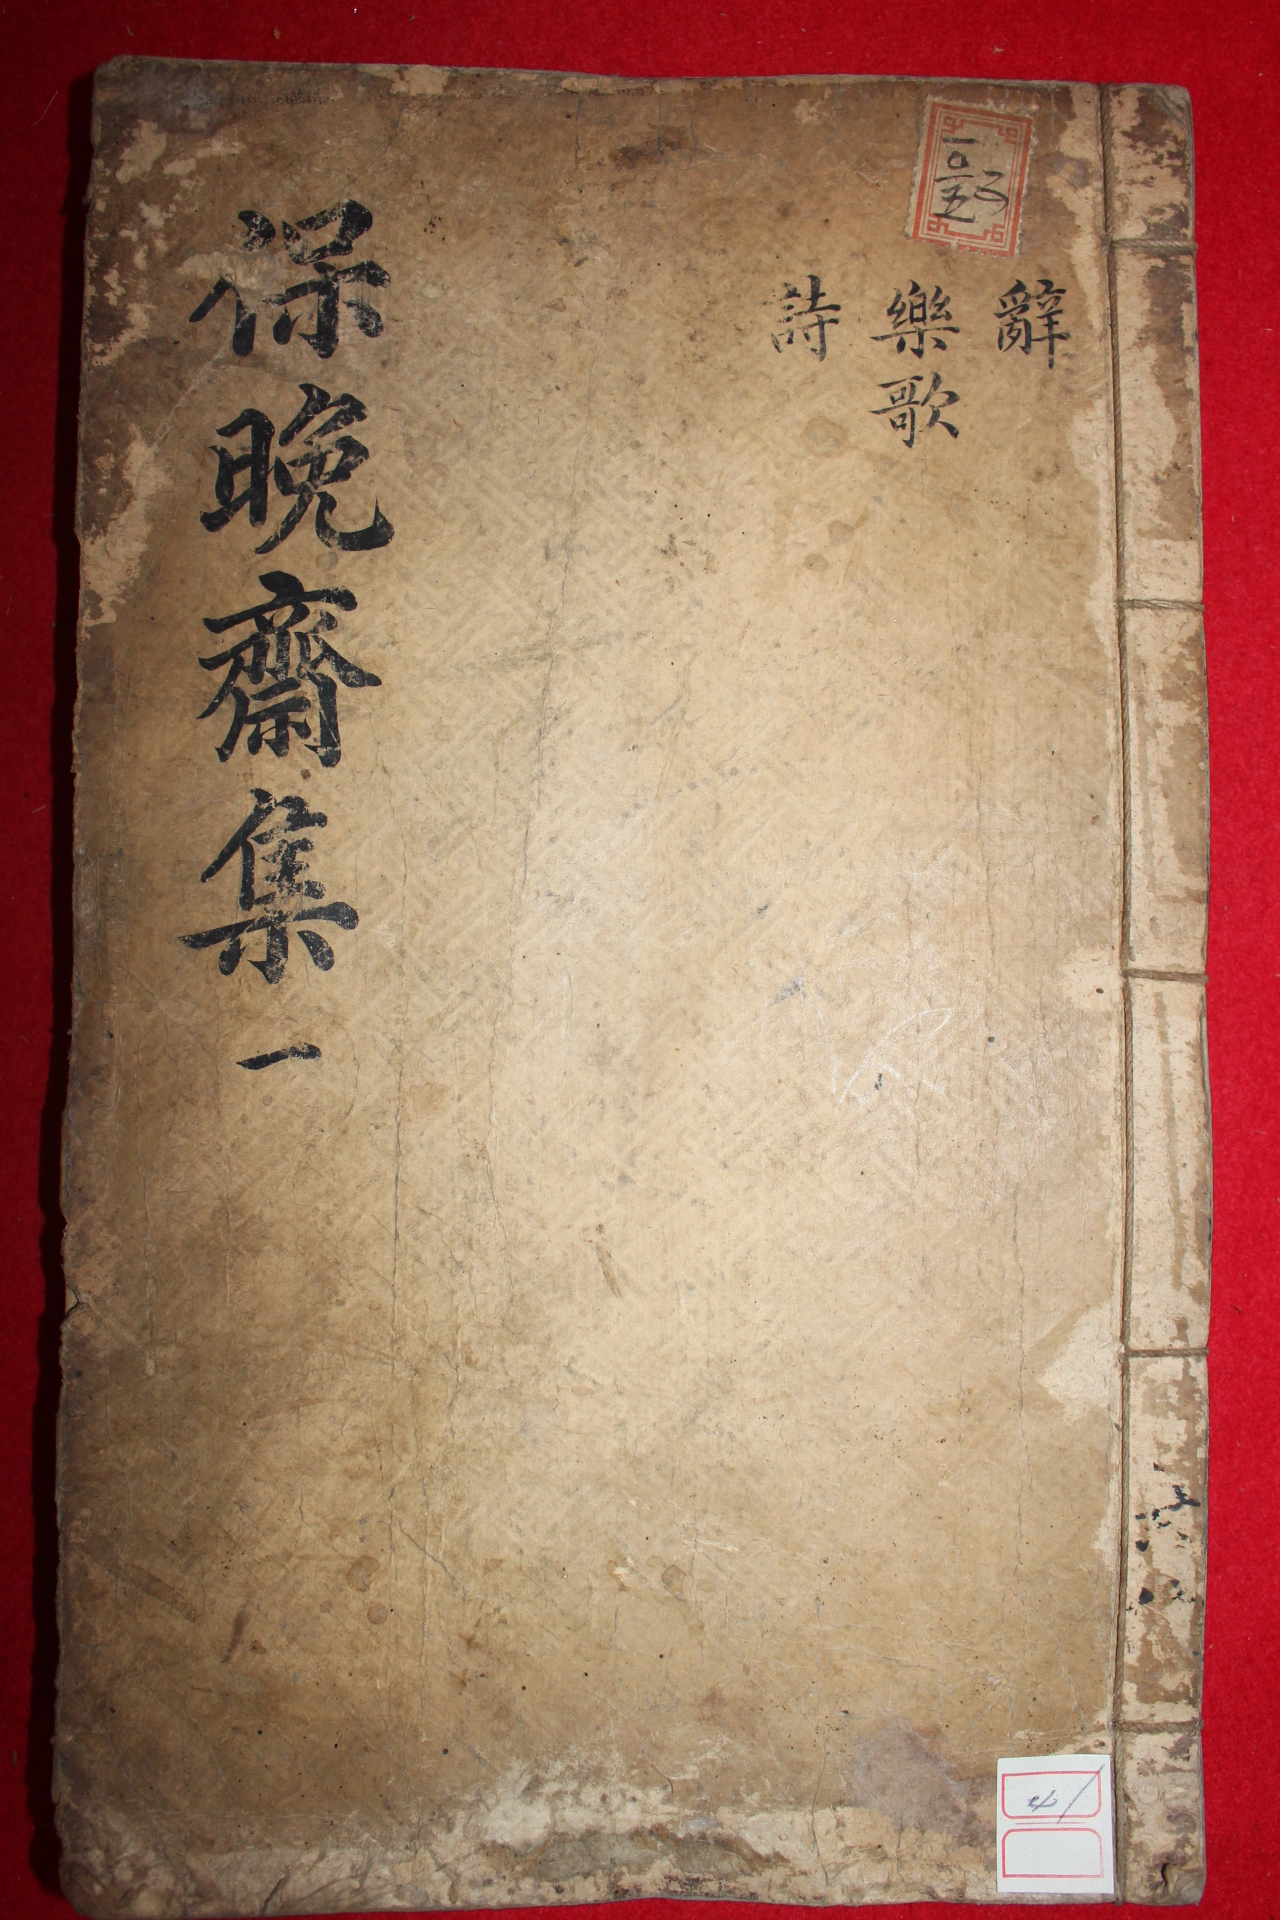 保晚齋集一
辭
樂歌
詩
一〇二五